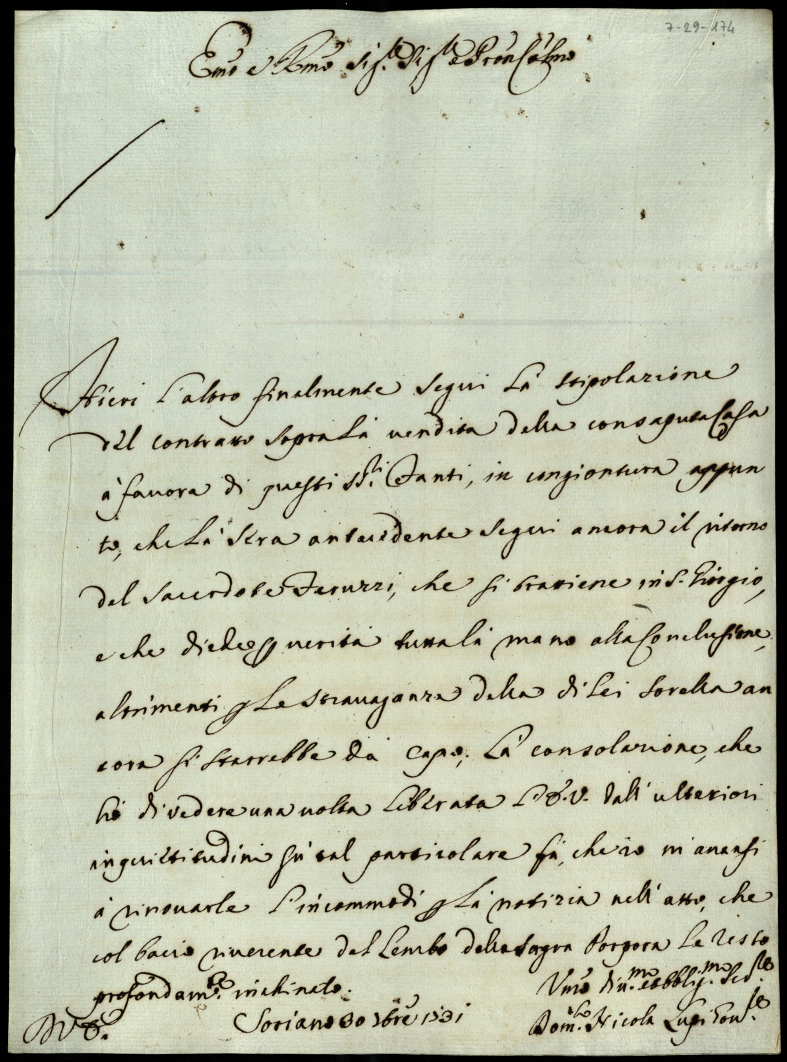 7-29-174
Em̃o e Rm̃o Sig.re Sig.re e Pron Col̃mo
Hieri l'altro finalmente seguì là stipolazione
del contratto sopra là vendita della consaputa Casa
à favore di questi SS.ri Fanti, in congiontura appun
to, che là sera antecedente seguì ancora il ritorno
del Sacerdote Feruzzi, che si trattiene in S. Giorgio,
e che diede p verità tutta là mano alla Conclusione,
altrimenti p le stravaganze della di lei sorella an
cora si starrebbe dà capo; Là consolazione, che
hò di vedere una volta liberata l'E.V. dall'ulteriori
inquietitudini sù tal particolare fà, che io m'avanzi
à rinovarle l'incommodi p là notizia nell'atto, che
col bacio riverente del Lembo della Sagra Porpora le resto
profondam.te inchinato.
Um̃o Div.mo ed obblig.mo Ser.re
D V E.
Soriano 30 Xbre 1731
Dom.co Nicola Lupi